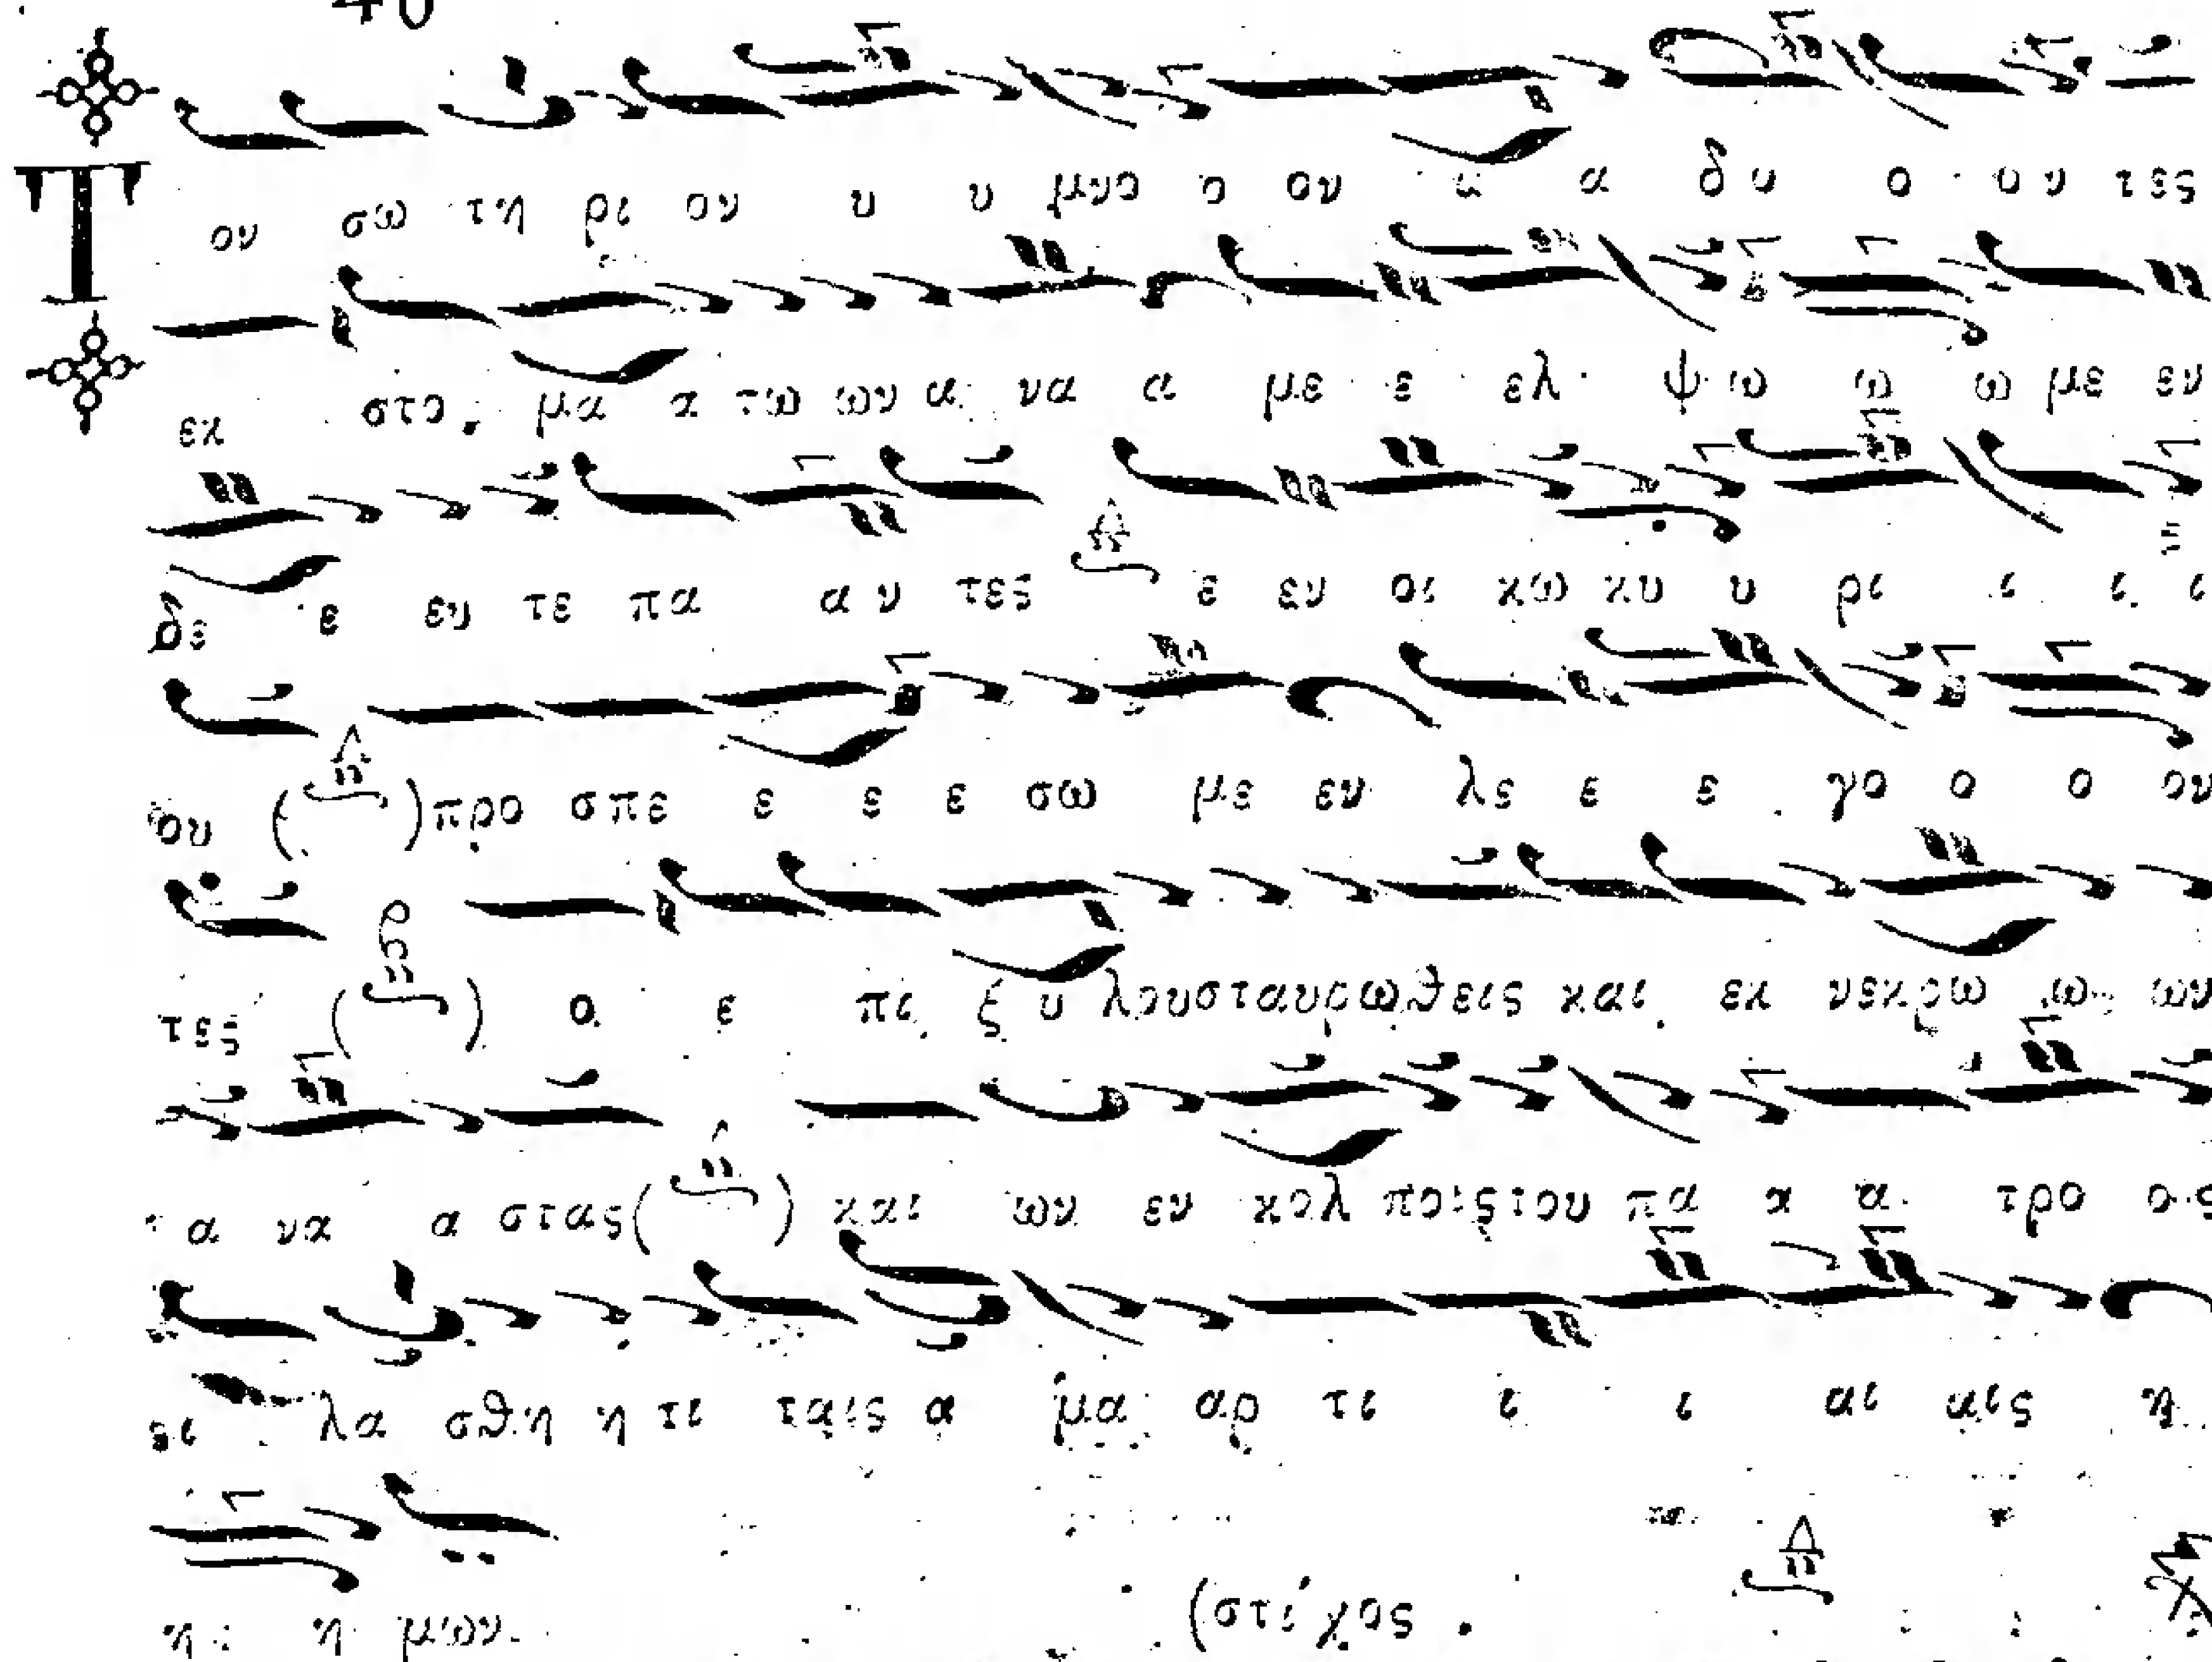 40
Τ ον σω τη ρι ον υ υ μνο ο ον α α δυ ο ον τες
εκ στο μα α τω ων α να α με ε ελ ψω ω ω με εν
δε ε εν τε πα α ν τες ε εν οι κω κυ υ ρι ι ι ι
ου ( ) προ σπε ε ε ε σω με εν λε ε ε γο ο ο ον
τες ( ) ο ε πι ξυ λου σταυρωθεις και εκ νεκρω ω ων
α να α στας ( ) και ων εν κολ ποις του πα α α τρο ος
ι λα σθη η τι ταις α μα αρ τι ι ι αι αις η
η η μων (στίχος .